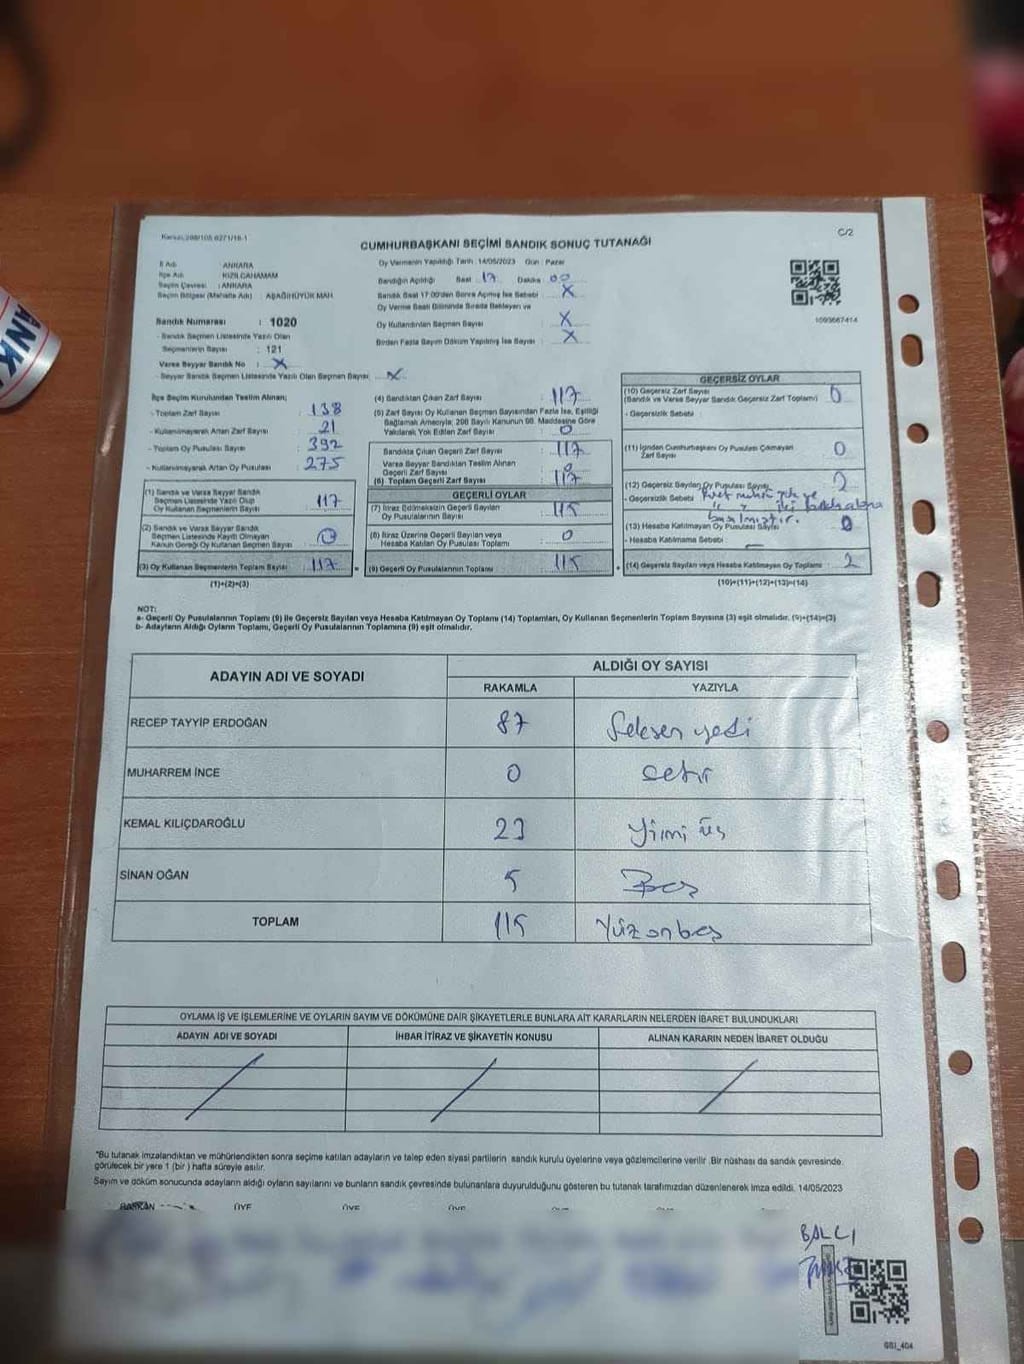 C/2
CUMHURBAŞKANI SEÇİMİ SANDIK SONUÇ TUTANAĞI
İl Adı : ANKARA
İlçe Adı : KIZILCAHAMAM
Seçim Çevresi : ANKARA
Seçim Bölgesi (Mahalle Adı) : AŞAĞIHÜYÜK MAH.
Sandık Numarası : 1020
- Sandık Seçmen Listesinde Yazılı Olan
Seçmenlerin Sayısı : 121
Varsa Seyyar Sandık No : X
- Seyyar Sandık Seçmen Listesinde Yazılı Olan Seçmen Sayısı X
Oy Vermenin Yapıldığı Tarih : 14/05/2023 Gün : Pazar
Sandığın Açıldığı Saat 17 Dakika 00
Sandık Saat 17:00'den Sonra Açılmış İse Sebebi X
Oy Verme Saati Bitiminde Sırada Bekleyen ve
Oy Kullandırılan Seçmen Sayısı X
Birden Fazla Sayım Döküm Yapılmış İse Sayısı X
1093667414
İlçe Seçim Kurulundan Teslim Alınan;
- Toplam Zarf Sayısı : 138
- Kullanılmayarak Artan Zarf Sayısı : 21
- Toplam Oy Pusulası Sayısı : 392
- Kullanılmayarak Artan Oy Pusulası : 275
(1) Sandık ve Varsa Seyyar Sandık
Seçmen Listesinde Yazılı Olup
Oy Kullanan Seçmenlerin Sayısı 117
(2) Sandık ve Varsa Seyyar Sandık
Seçmen Listesinde Kayıtlı Olmayan
Kanun Gereği Oy Kullanan Seçmen Sayısı 0
(3) Oy Kullanan Seçmenlerin Toplam Sayısı 117
(1)+(2)=(3)
(4) Sandıktan Çıkan Zarf Sayısı : 117
(5) Zarf Sayısı Oy Kullanan Seçmen Sayısından Fazla İse, Eşitliği
Sağlamak Amacıyla, 298 Sayılı Kanunun 98. Maddesine Göre
Yakılarak Yok Edilen Zarf Sayısı : 0
Sandıkta Çıkan Geçerli Zarf Sayısı : 117
Varsa Seyyar Sandıktan Teslim Alınan
Geçerli Zarf Sayısı : 0
(6) Toplam Geçerli Zarf Sayısı : 117
GEÇERLİ OYLAR
(7) İtiraz Edilmeksizin Geçerli Sayılan
Oy Pusulalarının Sayısı : 115
(8) İtiraz Üzerine Geçerli Sayılan veya
Hesaba Katılan Oy Pusulası Toplamı : 0
(9) Geçerli Oy Pusulalarının Toplamı : 115
GEÇERSİZ OYLAR
(10) Geçersiz Zarf Sayısı
(Sandık ve Varsa Seyyar Sandık Geçersiz Zarf Toplamı) : 0
- Geçersizlik Sebebi :
(11) İçinden Cumhurbaşkanı Oy Pusulası Çıkmayan
Zarf Sayısı : 0
(12) Geçersiz Sayılan Oy Pusulası Sayısı : 2
- Geçersizlik Sebebi
basılmıştır.
(13) Hesaba Katılmayan Oy Pusulası Sayısı 0
- Hesaba Katılmama Sebebi
(14) Geçersiz Sayılan veya Hesaba Katılmayan Oy Toplamı : 2
(10)+(11)+(12)+(13)=(14)
NOT:
a- Geçerli Oy Pusulalarının Toplamı (9) ile Geçersiz Sayılan veya Hesaba Katılmayan Oy Toplamı (14) Toplamları, Oy Kullanan Seçmenlerin Toplam Sayısına (3) eşit olmalıdır. (9)+(14)=(3)
b- Adayların Aldığı Oyların Toplamı, Geçerli Oy Pusulalarının Toplamına (9) eşit olmalıdır.
ADAYIN ADI VE SOYADI
ALDIĞI OY SAYISI
RAKAMLA YAZIYLA
RECEP TAYYİP ERDOĞAN 87 Seksen yedi
MUHARREM İNCE 0 sıfır
KEMAL KILIÇDAROĞLU 23 Yirmi üç
SİNAN OĞAN 5 Beş
TOPLAM 115 Yüzonbeş
OYLAMA İŞ VE İŞLEMLERİNE VE OYLARIN SAYIM VE DÖKÜMÜNE DAİR ŞİKAYETLERLE BUNLARA AİT KARARLARIN NELERDEN İBARET BULUNDUKLARI
ADAYIN ADI VE SOYADI İHBAR İTİRAZ VE ŞİKAYETİN KONUSU ALINAN KARARIN NEDEN İBARET OLDUĞU
*Bu tutanak imzalandıktan ve mühürlendikten sonra seçime katılan adayların ve talep eden siyasi partilerin sandık kurulu üyelerine veya gözlemcilerine verilir. Bir nüshası da sandık çevresinde
görülecek bir yere 1 (bir) hafta süreyle asılır.
Sayım ve döküm sonucunda adayların aldığı oyların sayılarını ve bunların sandık çevresinde bulunanlara duyurulduğunu gösteren bu tutanak tarafımızdan düzenlenerek imza edildi. 14/05/2023
BAŞKAN ÜYE ÜYE ÜYE
BALCI
GSI_404